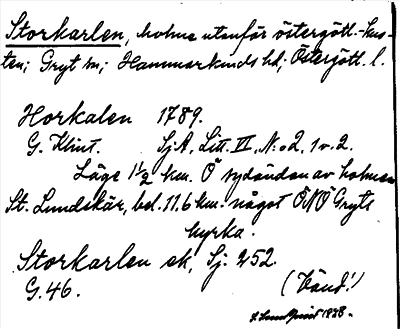 Storkarlen, holme utanför östergötl. kus-
ten; Gryt sn; Hammarkinds hd; Östergötl. l.
Horkalen 1789.
G. Klint. Sj.A. Litt. VI, N:o 2, 1 v. 2.
Läge 1½ km. Ö sydändan av holmen
St. Lundskär, bel. 11.6 km. något ÖNÖ Gryts
kyrka.
Storkarlen sk, Sj. 252.
G. 46. (Vänd!)
1938.